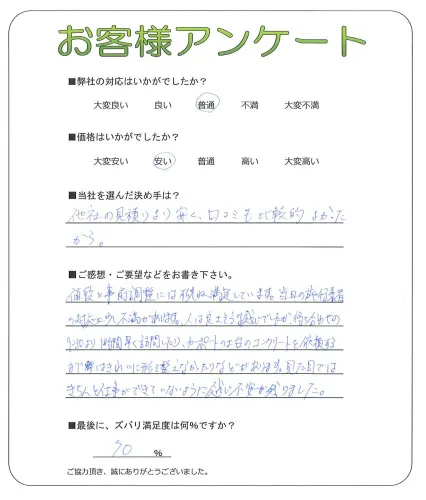 お客様アンケート
■弊社の対応はいかがでしたか？
大変良い 良い 普通 不満 大変不満
■価格はいかがでしたか？
大変安い 安い 普通 高い 大変高い
■当社を選んだ決め手は？
他社の見積りより安く、口コミも比較的よかった
から。
■ご感想・ご要望などをお書き下さい。
値段と事前調整には概ね満足しています。当日の
の対応に少し不満があります。人は良さそう でしたが、
より1時間早く訪問したり、カーポートの台のコンクリートを依頼する
まで はきれいに形を整えなかったりなどがあります。見た目では
きちんと仕事ができていないように 不安が残りました。
■最後に、ズバリ満足度は何％ですか？
70 ％
ご協力頂き、誠にありがとうございました。